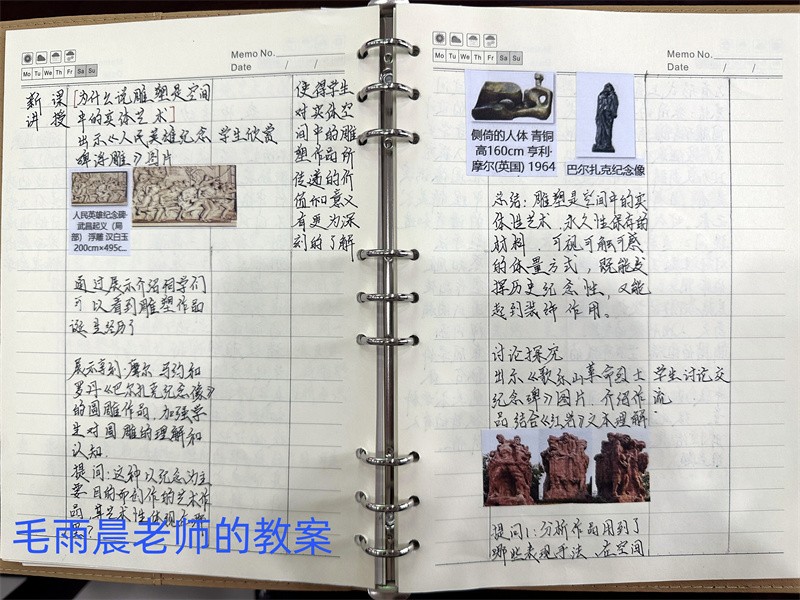 Memo No.
Mo Tu We Th Fr Sa Su
Date / /
新课
讲授
[为什么说雕塑是空间
中的实体艺术]
出示《人民英雄纪念
碑浮雕》图片
学生欣赏
使得学生
对实体空
间中的雕
塑作品所
传递的价
值和意义
有更为深
刻的了解
人民英雄纪念碑·
武昌起义（局
部） 浮雕 汉白玉
200cm×495c...
通过展示介绍同学们
可以看到雕塑作品
诞生经历了
展示亨利·摩尔
罗丹《巴尔扎克纪念像》
的圆雕作品,加强学
生对圆雕的理解和
认知.
提问:这种以纪念为主
要目的而创作的艺术作
品,其艺术性体现在哪
毛雨晨老师的教案
Memo No.
Mo Tu We Th Fr Sa Su
Date / /
侧倚的人体 青铜
高160cm 亨利·
摩尔(英国) 1964
巴尔扎克纪念像
总结:雕塑是空间中的实
体性艺术,永久性保存的
材料,可视可触可感
的体量方式,既能发
挥历史纪念性,又能
起到装饰作用。
讨论探究
出示《歌乐山革命烈士
纪念碑》图片,介绍作
品结合《红岩》文本理解
学生讨论交
流
提问1:分析作品用到了
哪些表现手法,在空间